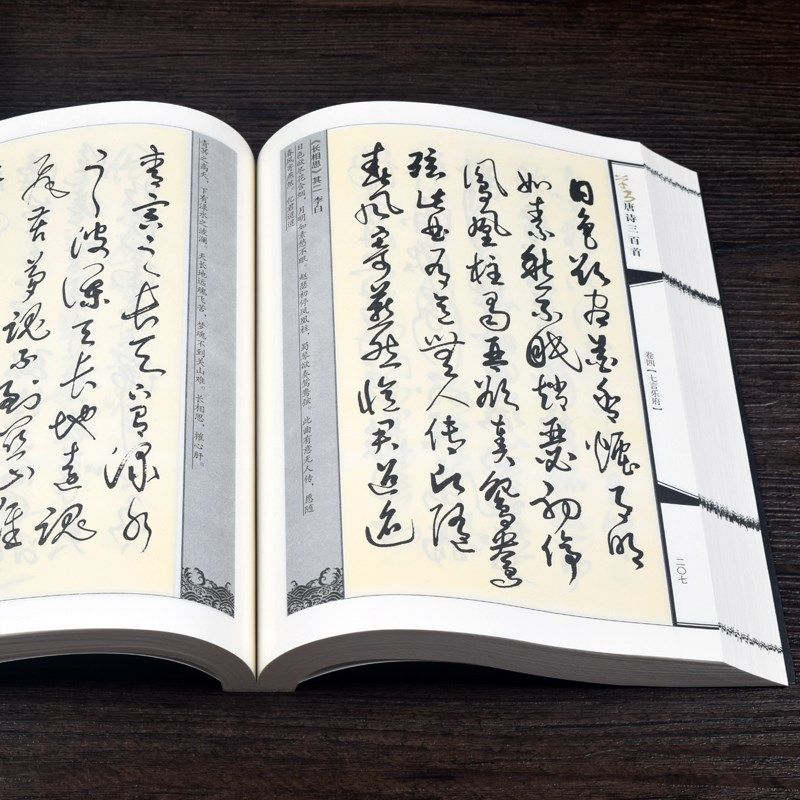 青冥之高天，下有渌水之波澜。天长地远魂飞苦，梦魂不到关山难。长相思，摧心肝。
青冥之长天下有渌水
之波澜天长地远魂
飞苦梦魂不到关山难
草书唐诗三百首
卷四【七言乐府】
二〇七
日色欲尽花含烟月明
如素愁不眠赵瑟初停
凤凰柱蜀琴欲奏鸳鸯
弦此曲有意无人传愿随
春风寄燕然忆君迢迢
《长相思》其二 李白
日色欲尽花含烟，月明如素愁不眠。赵瑟初停凤凰柱，蜀琴欲奏鸳鸯弦。此曲有意无人传，愿随
春风寄燕然，忆君迢迢